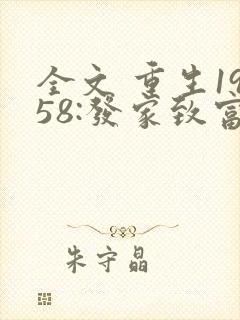 全文 重生19
58:發家致富
朱守晶